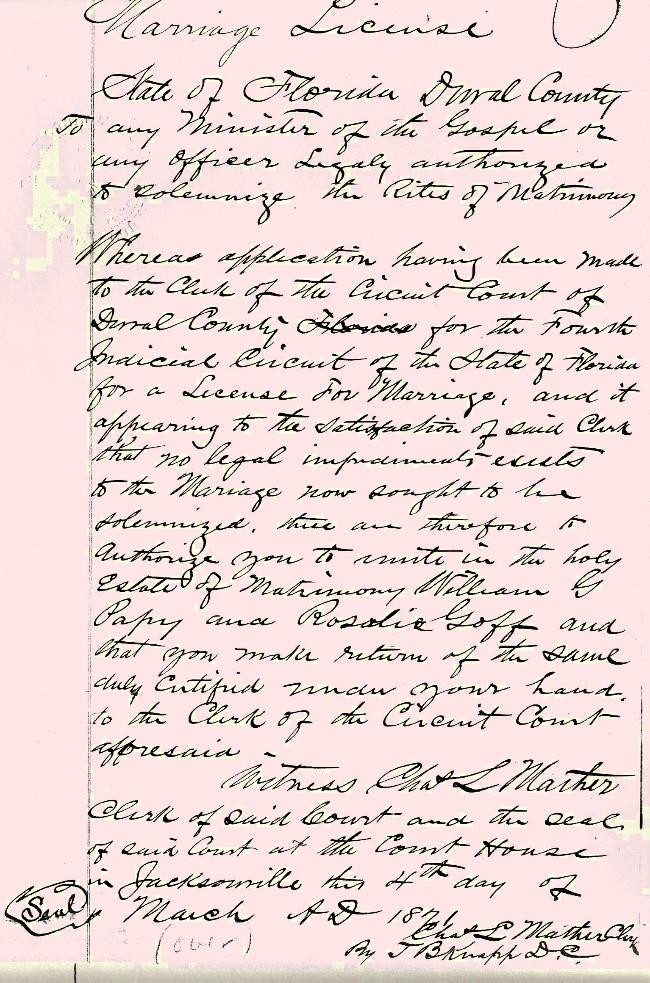 Marriage License
State of Florida Duval County
To any Minister of the Gospel or
any Officer Legaly authorized
to solemnize the Rites of Matrimony
Whereas application having been made
to the Clerk of the Circuit Court of
Duval County Florida for the Fourth
Judicial Circuit of the State of Florida
for a License For Marriage, and it
appearing to the satisfaction of said Clerk
that no legal impediments exists
to the Mariage now sought to be
solemnized. these are therefore to
Authorize you to unite in the holy
Estate of Matrimony William G
Papy and Rosalie Goff and
that you make return of the same
duly Certified under your hand.
to the Clerk of the Circuit Court
afforesaid -
Witness Chas L Mather
Clerk of said Court and the seal
of said Court at the Court House
in Jacksonville this 4th day of
Seal March A D 1871
Chas L Mather Clk
(over) By J B Knapp D.C.